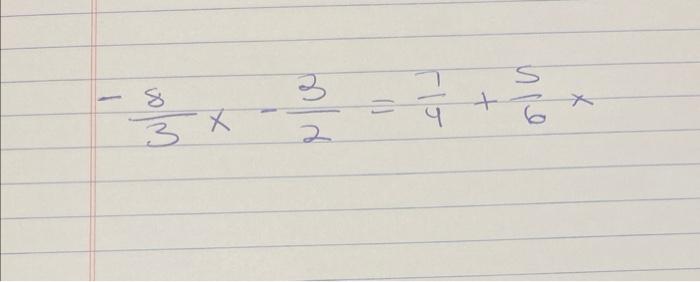 - 8/3 x - 3/2 = 7/4 + 5/6 x